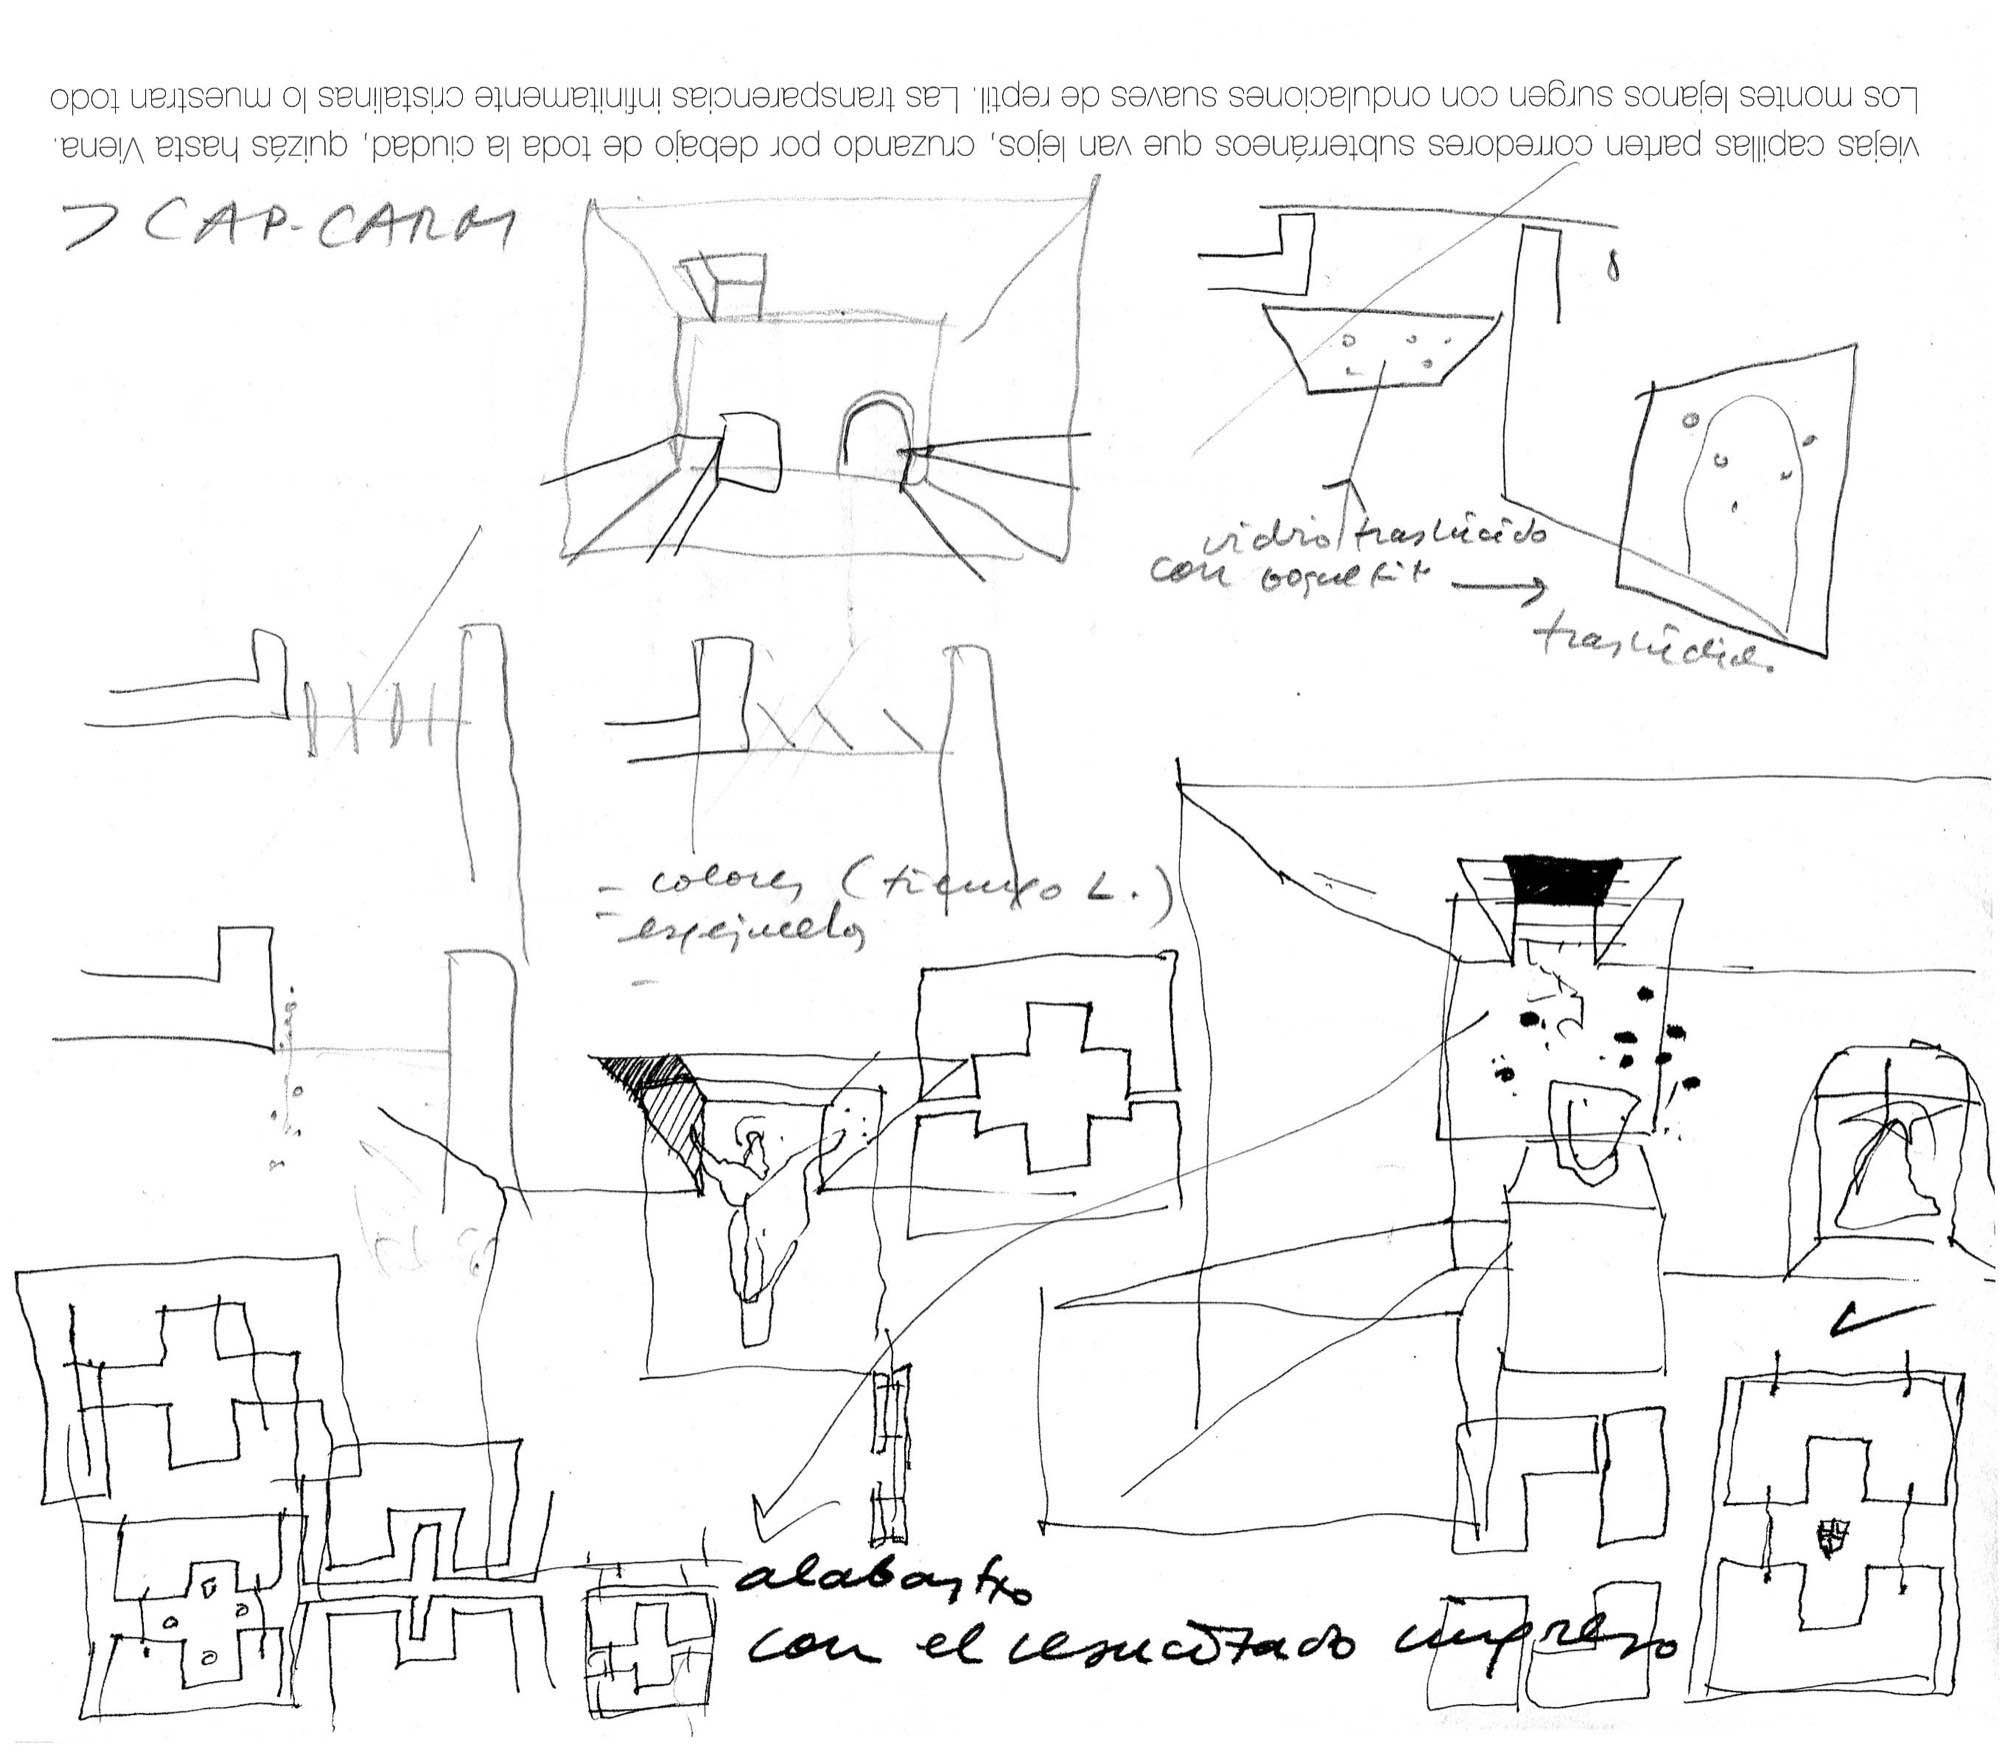 viejas capillas parten corredores subterráneos que van lejos, cruzando por debajo de toda la ciudad, quizás hasta Viena.
Los montes lejanos surgen con ondulaciones suaves de reptil. Las transparencias infinitamente cristalinas lo muestran todo
> CAP-CARM
vidrio traslúcido
con
traslúcido
- colores (tiempo L.)
- espejuelos
-
alabastro
con el resucitado impreso